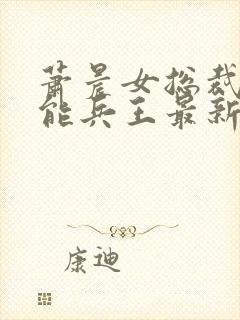 萧晨女总裁
能兵王最新
康迪